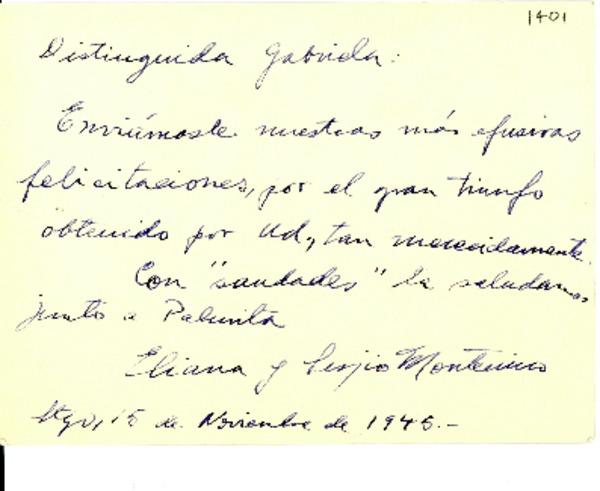 1401
Distinguida Gabriela:
Enviámosle nuestras más efusivas
felicitaciones, por el gran triunfo
obtenido por Ud, tan merecidamente.
Con "saudades" la saludamos
junto a Palmita
Eliana y Sergio Montecinos
Stgo, 15 de Noviembre de 1945.-